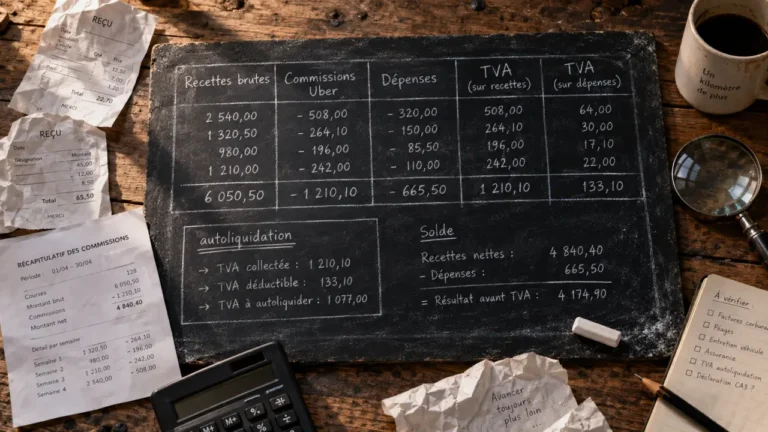 REÇU
Total 22,70
MERCI
REÇU
Date
Désignation Montant
45,00
12,00
8,50
Total 65,50
MERCI
RÉCAPITULATIF DES COMMISSIONS
Période : 01/04 – 30/04
Courses 128
Montant brut 6 050,50
Commissions -1 210,10
Montant net 4 840,40
Détail par semaine
Semaine 1 1 320,50 -264,10
Semaine 2 980,00 -196,00
Semaine 3 1 210,00 -242,00
Semaine 4 2 540,00 -508,00
Recettes brutes Commissions Uber Dépenses TVA (sur recettes) TVA (sur dépenses)
2 540,00 - 508,00 - 320,00 508,00 64,00
1 320,50 - 264,10 - 150,00 264,10 30,00
980,00 - 196,00 - 85,50 196,00 17,10
1 210,00 - 242,00 - 110,00 242,00 22,00
6 050,50 - 1 210,10 - 665,50 1 210,10 133,10
autoliquidation
→ TVA collectée : 1 210,10
→ TVA déductible : 133,10
→ TVA à autoliquider : 1 077,00
Solde
Recettes nettes : 4 840,40
- Dépenses : 665,50
= Résultat avant TVA : 4 174,90
Un
kilomètre
de plus
À vérifier
□ Factures
□ Péages
□ Entretien véhicule
□ Assurance
□ TVA autoliquidation
□ Déclaration CA3 ?
M+ M- % ÷
MU
Avancer
toujours
plus loin